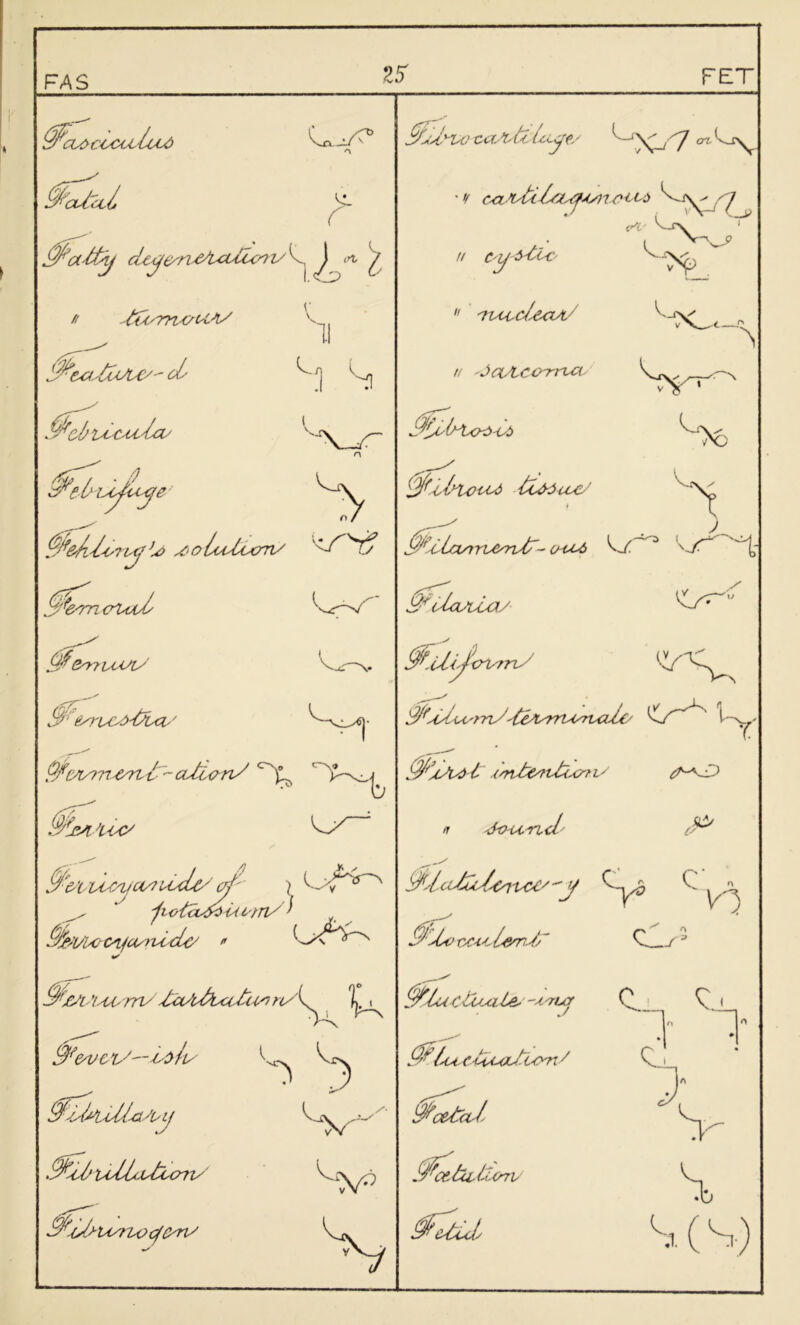 FAS 25 FET
Fasciculus
Fatal
Fatty degeneration or
" tumour
Feature-d
Febricula
Febrifuge
Fehling's solution
Femoral
Femur
Fenestra
Ferment-ation
Ferric
Ferricyanide of
potassium
Ferrocyanide "
Ferrum tartratum
Fever-ish
Fibrillary
Fibrillation
Fibrinogen
Fibro cartilage or
" cartilaginous
or
" cystic
" nuclear
" sarcoma
Fibrosis
Fibrous tissue
Filament-ous
Filaria
Filiform
Filum terminale
First intention
" sound
Flatulence-y
Flocculent
Fluctuate-ing
Fluctuation
Foetal
Foetation
Fetid